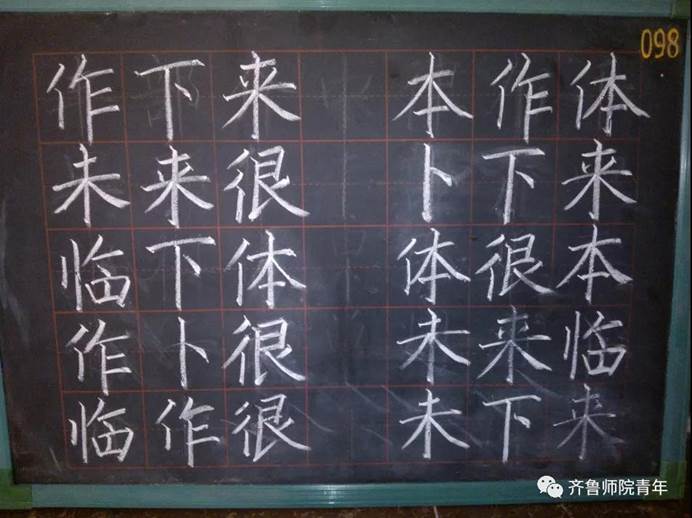 098
作下来 本作体
未来很 卜下来
临下体 体很本
作卜很 未来临
临作很 未下来
齐鲁师院青年